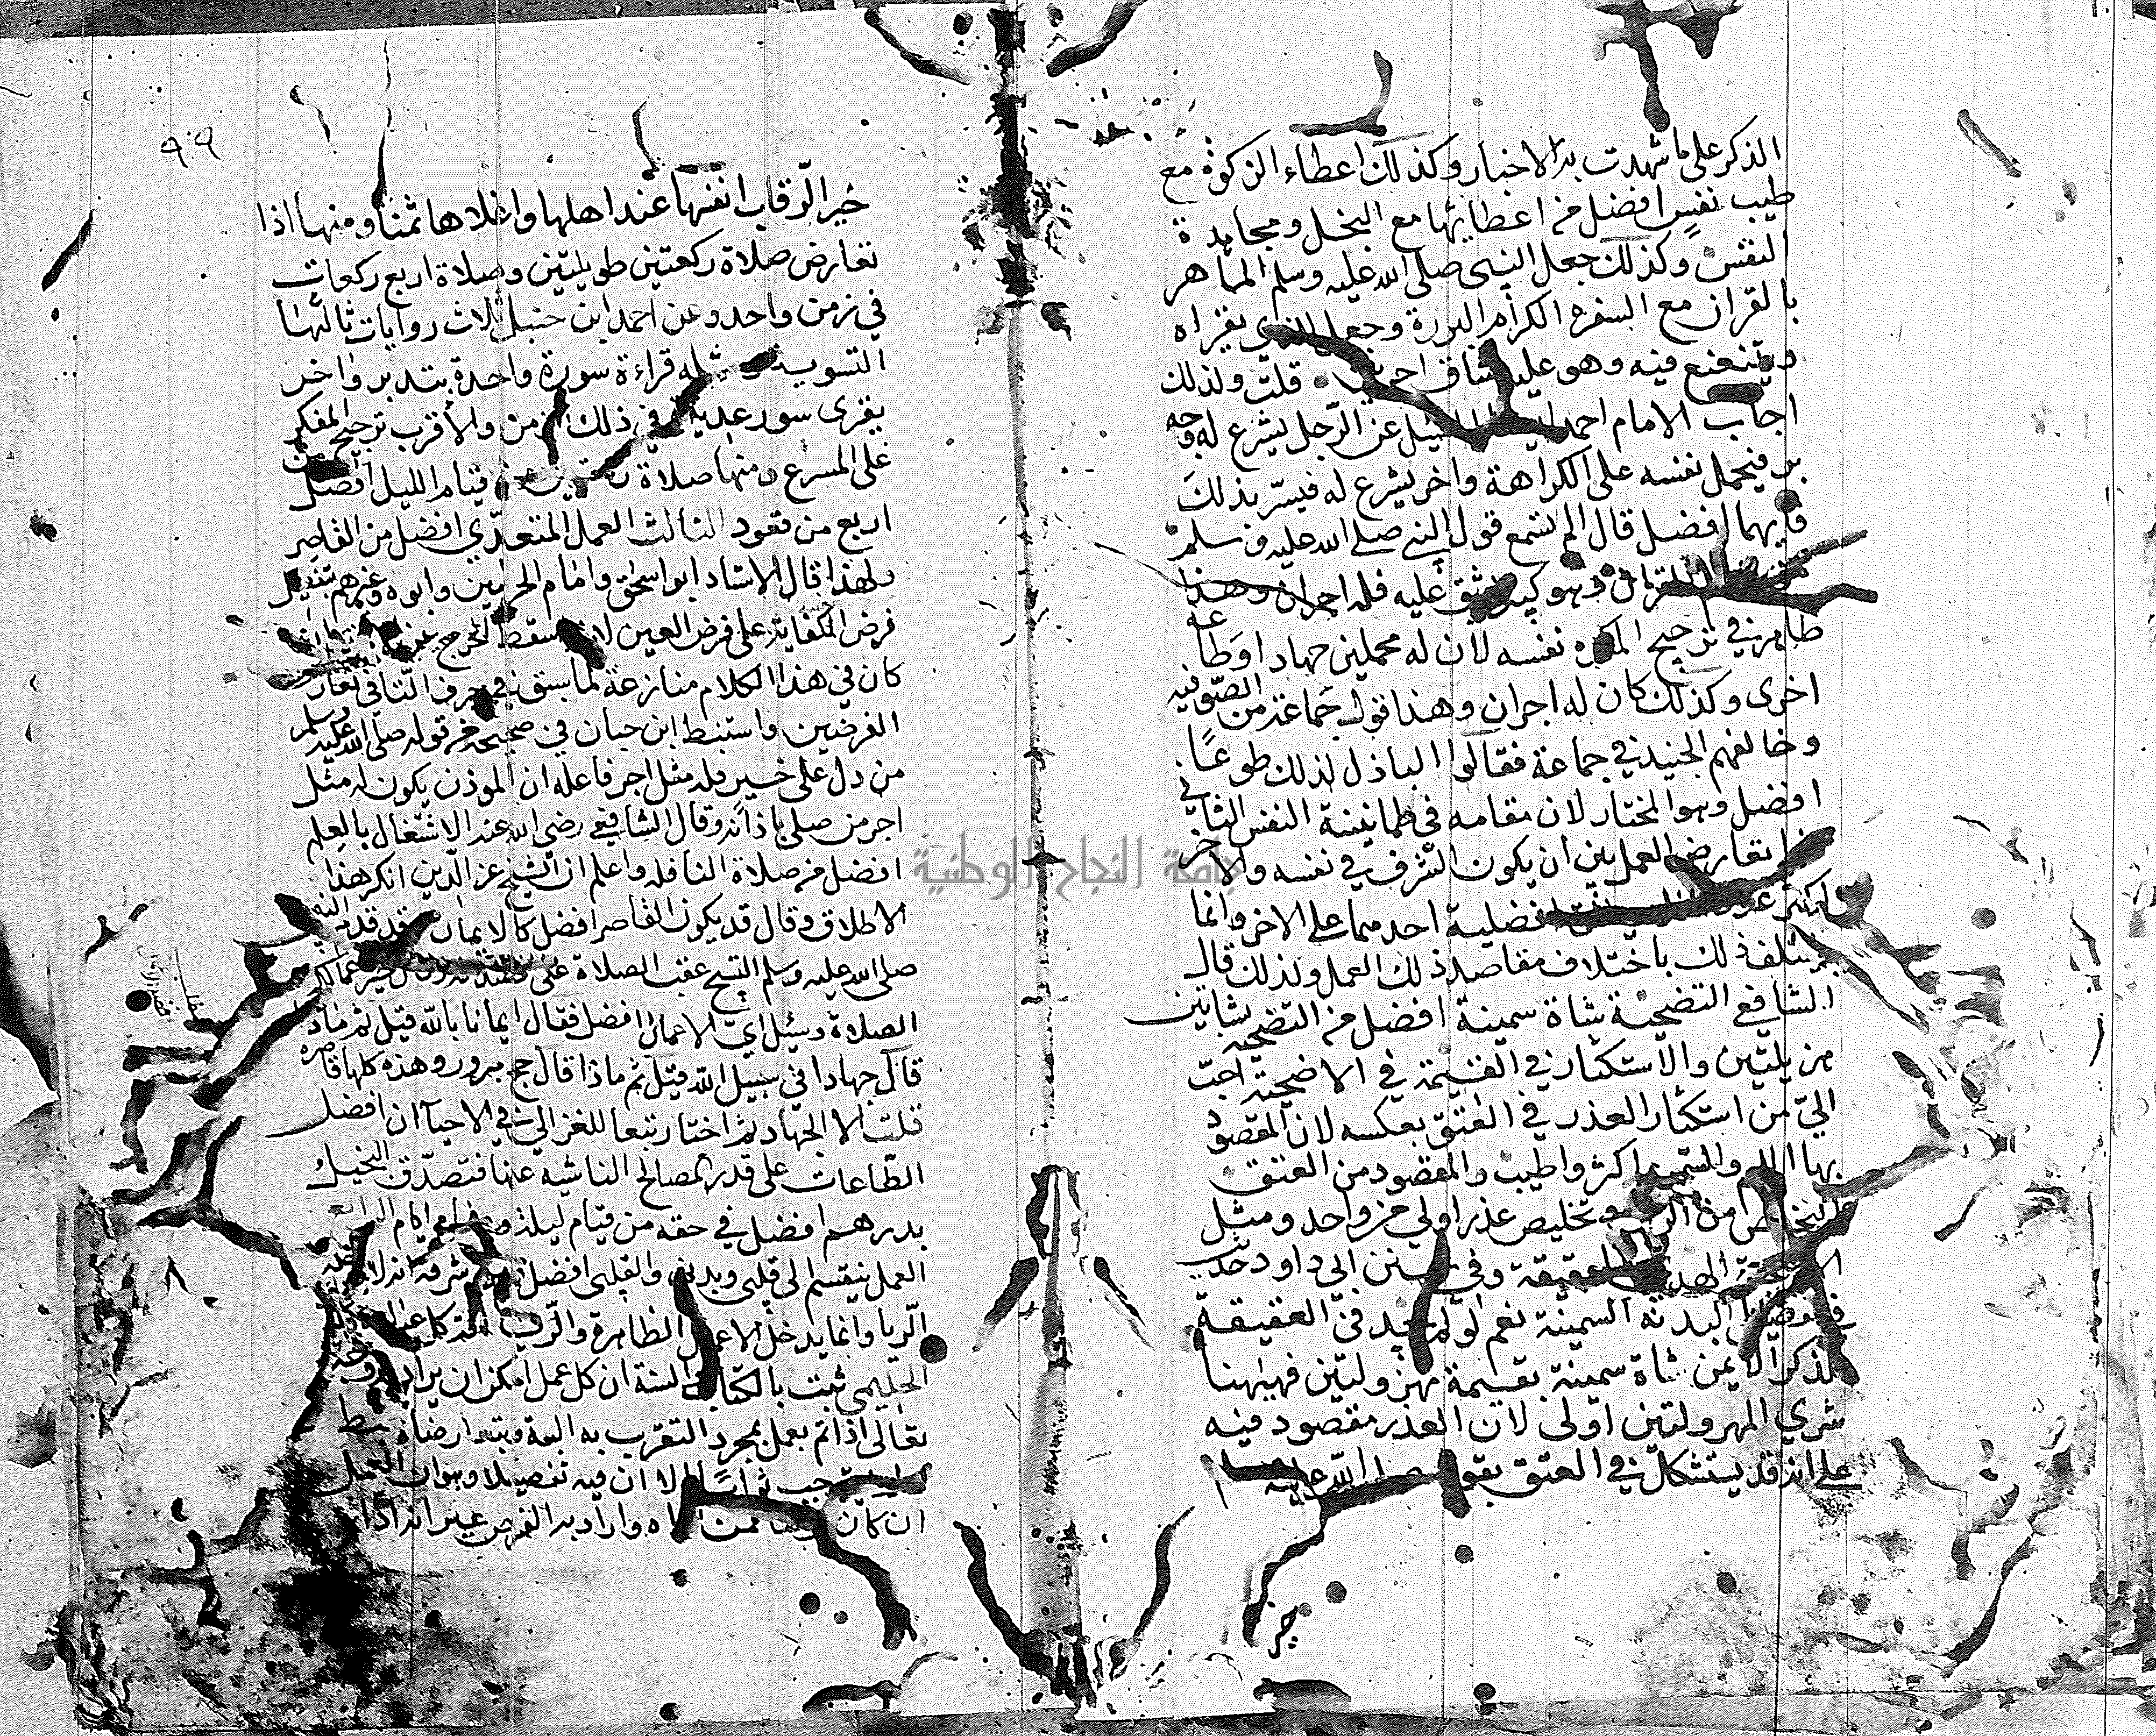 الذكر على ما شهدت به الاخبار وكذلك اعطاء الزكوة مع
طيب نفس افضل من اعطائها مع البخل ومجاهدة
النفس وكذلك جعل النبي صلى الله عليه وسلم الماهر
بالقران مع السفرة الكرام البررة وجعل للذي يقراه
ويتتعتع فيه وهو عليه شاق اجرين قلت ولذلك
اجاب الامام احمد سئل عن الرجل يشرع له وجه
بر فيحمل نفسه على الكراهة واخر يشرع له فيسر بذلك
فايهما افضل قال الم تسمع قول النبي صلى الله عليه وسلم
القران وهو كبير يشق عليه فله اجران وهذا
ظاهر في ترجيح المكره نفسه لان له محملين جهاد او طاعة
اخرى وكذلك كان له اجران وهذا قول جماعة من الصوفيه
وخالفهم الجنيد في جماعة فقالوا الباذل لذلك طوعا
افضل وهو المختار لان مقامه في طمانينة النفس الثاني
تعارض العملين ان يكون الشرف في نفسه والاخر
اكثر افضلية احدهما على الاخر وانما
يختلف ذلك باختلاف مقاصد ذلك العمل ولذلك قال
الشافعي التضحية شاة سمينة افضل من التضحيه بشاتين
هزيلتين والاستكثار في القيمة في الاضحية احب
الي من استكثار العدد في العتق بعكسه لان المقصود
بها اللحم والسمين اكثر واطيب والمقصود من العتق
التخليص من الرق وتخليص عدد اولى من واحد ومثل
الهدي العقيقة وفي سنن ابي داود حديث
البدنه السمينة نعم لو لم يجد في العقيقة
للذكر الا ثمن شاة سمينة بقيمة مهزولتين فهيهنا
شري المهزولتين اولى لان العدد مقصود فيه
على انه قد يستشكل في العتق بقوله صلى الله عليه
خير
٩٩
خير الرقاب انفسها عند اهلها واغلاها ثمنا ومنها اذا
تعارض صلاة ركعتين طويلتين وصلاة اربع ركعات
في زمن واحد وعن احمد ابن حنبل ثلاث روايات ثالثها
التسوية ومثله قراءة سورة واحدة بتدبر واخر
يقرى سور عديدة في ذلك الزمن والاقرب ترجيح المفكر
على المسرع ومنها صلاة ركعتين من قيام الليل افضل من
اربع من قعود الثالث العمل المتعدي افضل من القاصر
ولهذا قال الاستاد ابو اسحق وامام الحرمين وابوه وغيرهم بتفضيل
فرض الكفاية على فرض العين لانه سقط الحرج
كان في هذا الكلام منازعة لما سبق في حرف التا في تعارض
الفرضين واستنبط ابن حبان في صحيحه من قوله صلى الله عليه وسلم
من دل على خير فله مثل اجر فاعله ان الموذن يكون له مثل
اجر من صلى باذانه وقال الشافعي رضي الله عنه الاشتغال بالعلم
افضل من صلاة النافله واعلم ان الشيخ عز الدين انكر هذا
الاطلاق وقال قد يكون القاصر افضل كالايمان وقد قدم النبي
صلى الله عليه وسلم التسبيح عقب الصلاة على
الصلاة وسئل اي الاعمال افضل فقال ايمانا بالله قيل ثم ماذا
قال جهادا في سبيل الله قيل ثم ماذا قال حج مبرور وهذه كلها قاصرة
قلت الا الجهاد ثم اختار تبعا للغزالي في الاحيا ان افضل
الطاعات على قدر المصالح الناشيه عنها فتصدق البخيل
بدرهم افضل في حقه من قيام ليلة وصيام ايام الرابع
العمل ينقسم الى قلبي وبدني والقلبي افضل
الريا وانما يدخل الاعمال الظاهرة
الحليمي ثبت بالكتاب والسنة ان كل عمل امكن ان يراد به وجه
تعالى اذا لم يعمل بمجرد التقرب به اليه وابتغا رضاه حبط
ولم يستوجب ثوابا الا ان فيه تفصيلا وهو ان العمل
ان كان واراد به الفرض غير انه ادا